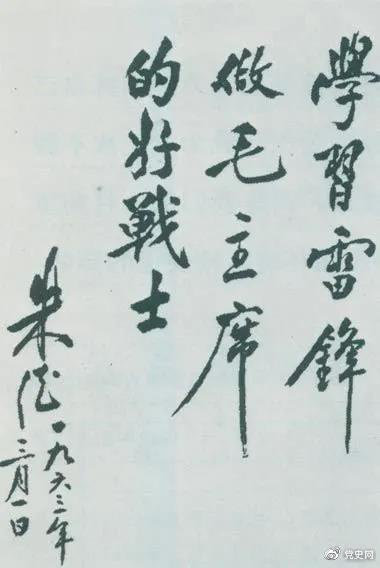 學習雷鋒
做毛主席
的好戰士
朱德一九六三年
三月一日
@党史网